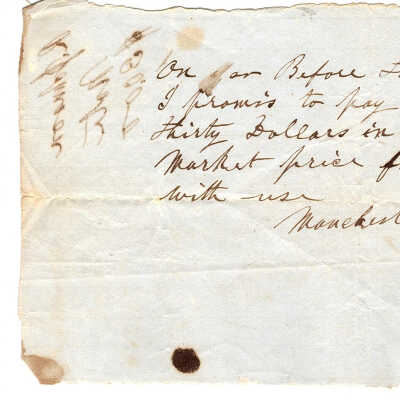 On or Before
I promis to pay
thirty Dollars in
market price
with use
Manchest